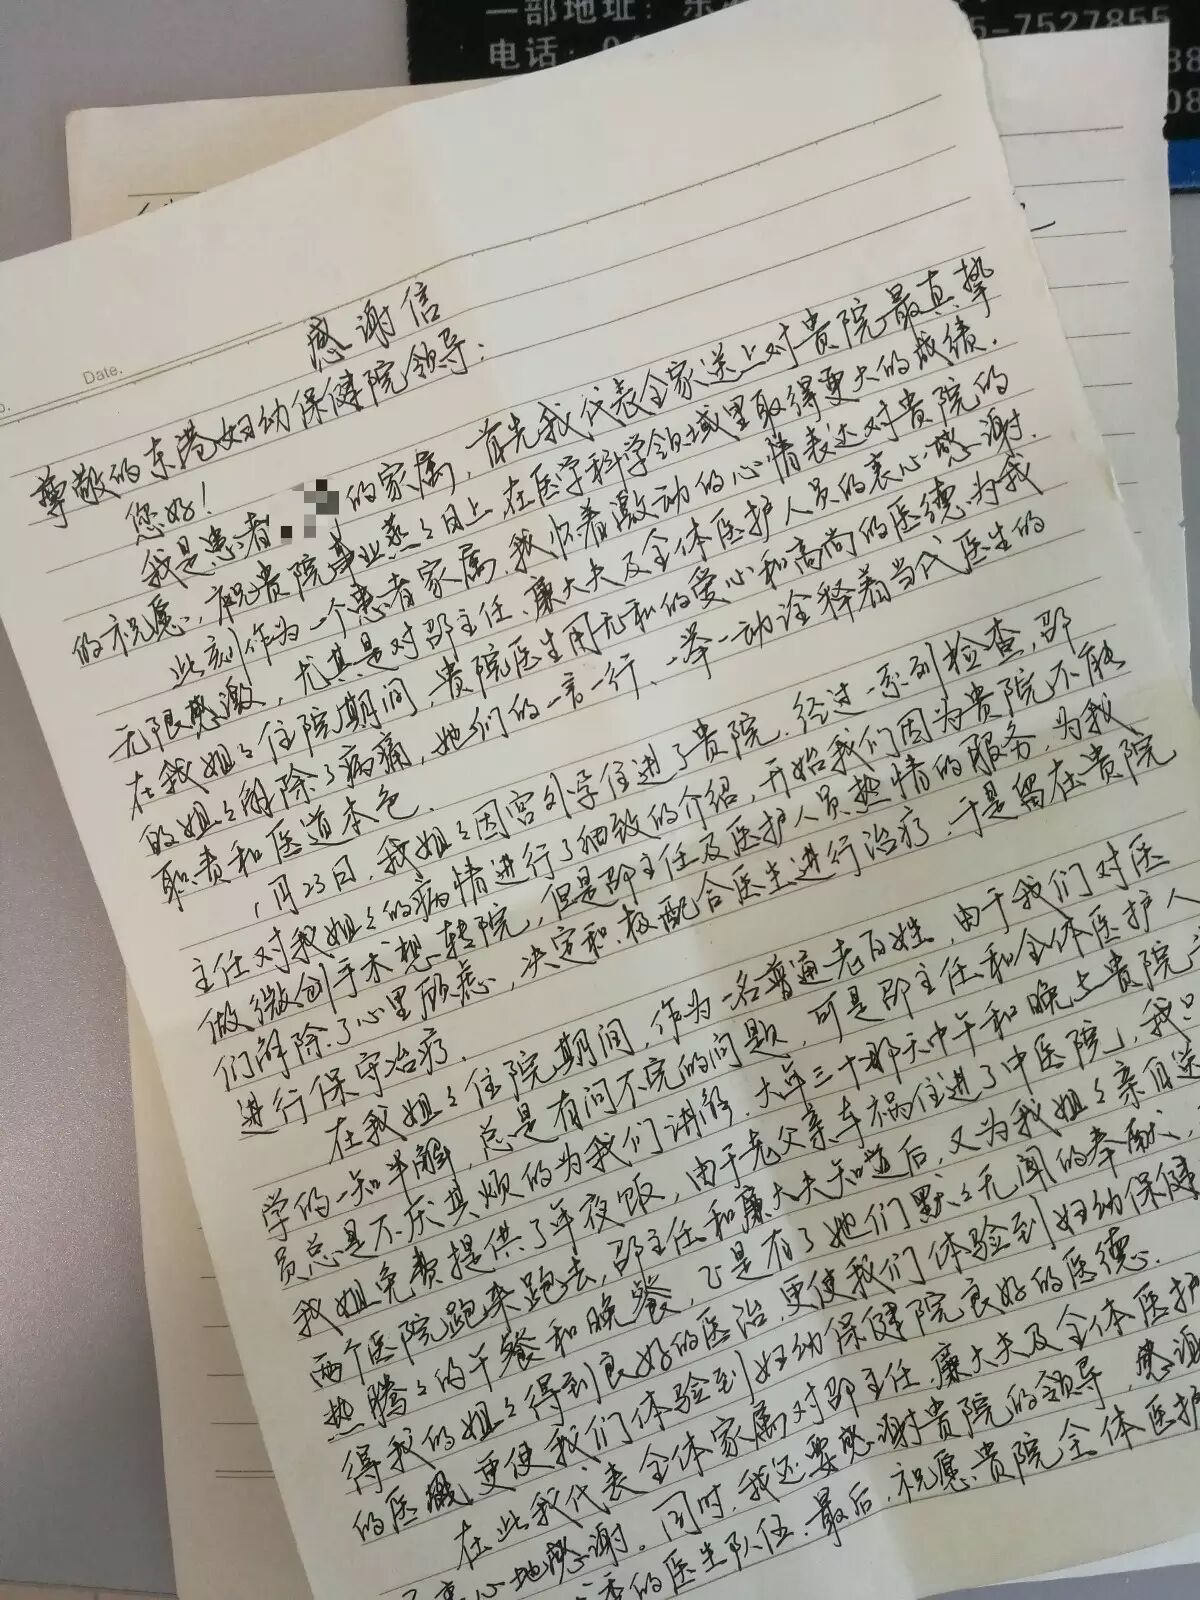 一部地址：东
5-7527855
电话：0
88
08
感谢信
Date.
尊敬的东港妇幼保健院领导：
您好！
我是患者 的家属，首先我代表全家送上对贵院最真挚
的祝愿，祝贵院事业蒸々日上，在医学科学领域里取得更大的成绩．
此刻作为一个患者家属，我怀着激动的心情表达对贵院的
无限感激，尤其是对邵主任、廉大夫及全体医护人员的衷心感谢．
在我姐々住院期间，贵院医生用无私的爱心和高尚的医德为我
的姐々解除了病痛，她们的一言一行、一举一动诠释着当代医生的
职责和医道本色．
1月23日，我姐々因宫外孕住进了贵院．经过一系列检查，邵
主任对我姐々的病情进行了细致的介绍，开始我们因为贵院不能
做微创手术想转院，但是邵主任及医护人员热情的服务，为我
们解除了心里顾虑，决定和极配合医生进行治疗．于是留在贵院
进行保守治疗．
在我姐々住院期间，作为一名普通老百姓，由于我们对医
学的一知半解，总是有问不完的问题，可是邵主任和全体医护人
员总是不厌其烦的为我们讲解．大年三十那天中午和晚上贵院
我姐免费提供了年夜饭，由于老父亲车祸住进了中医院，我只
两个医院跑来跑去，邵主任和廉大夫知道后，又为我姐々亲自送
热腾々的午餐和晚餐，正是有了她们默々无闻的奉献，
得我的姐々得到良好的医治，更使我们体验到妇幼保健
的医 更使我们体验到妇幼保健院良好的医德．
在此我代表全体家属对邵主任、廉大夫及全体医护
衷心地感谢．同时，我还要感谢贵院的领导，感谢
秀的医生队伍．最后，祝愿贵院全体医护